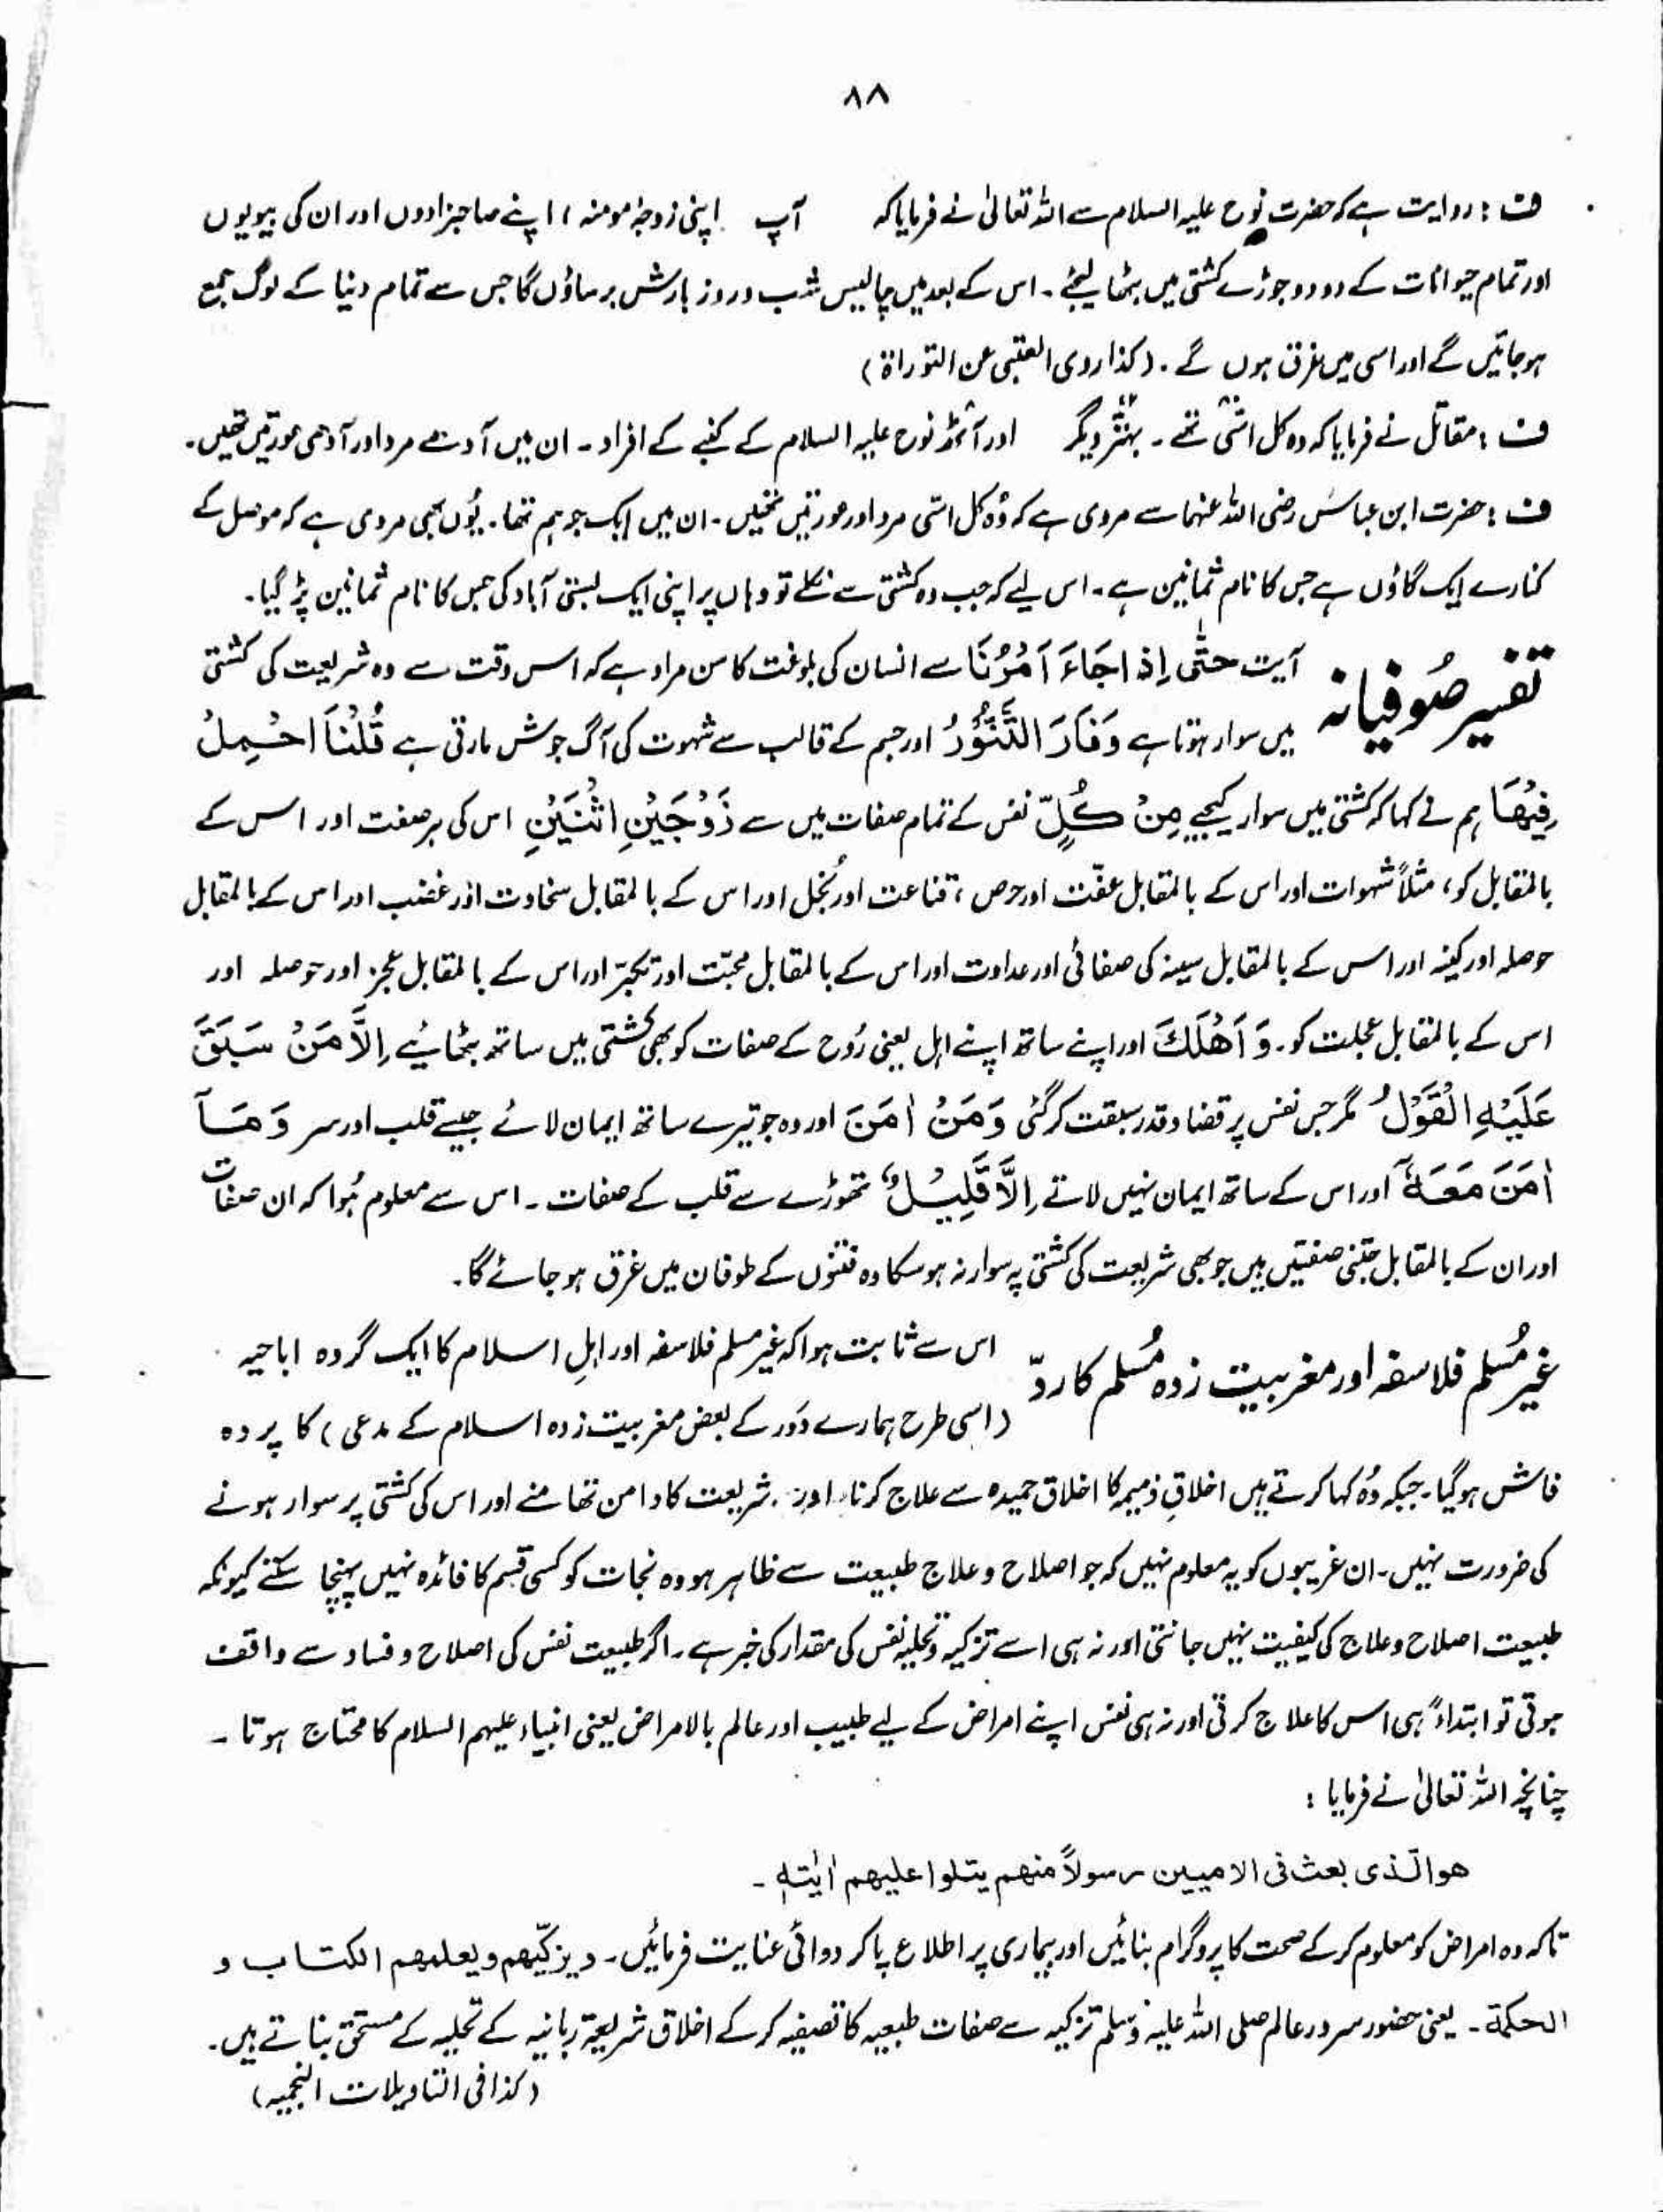 ۸۸
ف : روایت ہے کہ حضرت نوح علیہ السلام سے اللہ تعالیٰ نے فرمایا کہ آپ اپنی زوجۂ مومنہ ، اپنے صاحبزادوں اور ان کی بیویوں
اور تمام حیوانات کے دو دو جوڑے کشتی میں بٹھا لیجئے ۔ اس کے بعد میں چالیس شب و روز بارش برساؤں گا جس سے تمام دنیا کے لوگ جمع
ہوجائیں گے اور اسی میں غرق ہوں گے ۔ (کذا روی العتبی عن التوراۃ)
ف : مقاتل نے فرمایا کہ وہ کل اسّی تھے ۔ بہتّر دیگر اور آٹھ نوح علیہ السلام کے کنبے کے افراد ۔ ان میں آدھے مرد اور آدھی عورتیں تھیں ۔
ف : حضرت ابن عباس رضی اللہ عنہما سے مروی ہے کہ وُہ کل اسّی مرد اور عورتیں تھیں ۔ ان میں ایک جرہم تھا ۔ یُوں بھی مروی ہے کہ موصل کے
کنارے ایک گاؤں ہے جس کا نام ثمانین ہے ۔ اس لیے کہ جب وہ کشتی سے نکلے تو وہاں پر اپنی ایک بستی آباد کی جس کا نام ثمانین پڑ گیا ۔
تفسیر صُوفیانہ آیت حَتّٰی اِذَا جَاءَ اَمْرُنَا سے انسان کی بلوغت کا سن مراد ہے کہ اس وقت سے وہ شریعت کی کشتی
میں سوار ہوتا ہے وَفَارَ التَّنُّوْرُ اور جسم کے قالب سے شہوت کی آگ جوش مارتی ہے قُلْنَا احْمِلْ
فِیْھَا ہم نے کہا کہ کشتی میں سوار کیجیے مِنْ کُلٍّ نفس کے تمام صفات میں سے زَوْجَیْنِ اثْنَیْنِ اس کی ہر صفت اور اس کے
بالمقابل کو ، مثلاً شہوات اور اس کے بالمقابل عفّت اور حرص ، قناعت اور بُخل اور اس کے بالمقابل سخاوت اور غضب اور اس کے بالمقابل
حوصلہ اور کینہ اور اس کے بالمقابل سینہ کی صفائی اور عداوت اور اس کے بالمقابل محبّت اور تکبّر اور اس کے بالمقابل عجز اور حوصلہ اور
اس کے بالمقابل عجلت کو ۔ وَاَھْلَکَ اور اپنے ساتھ اپنے اہل یعنی رُوح کے صفات کو بھی کشتی میں ساتھ بٹھائیے اِلَّا مَنْ سَبَقَ
عَلَیْہِ الْقَوْلُ مگر جس نفس پر قضا و قدر سبقت کر گئی وَمَنْ اٰمَنَ اور وہ جو تیرے ساتھ ایمان لائے جیسے قلب اور سر وَمَآ
اٰمَنَ مَعَہٗ اور اس کے ساتھ ایمان نہیں لاتے اِلَّا قَلِیْلٌ تھوڑے سے قلب کے صفات ۔ اس سے معلوم ہُوا کہ ان صفات
اور ان کے بالمقابل جتنی صفتیں ہیں جو بھی شریعت کی کشتی پہ سوار نہ ہوسکا وہ فتنوں کے طوفان میں غرق ہوجائے گا ۔
غیر مُسلم فلاسفہ اور مغربیت زدہ مُسلم کا ردّ اس سے ثابت ہوا کہ غیر مسلم فلاسفہ اور اہلِ اسلام کا ایک گروہ اباحیہ
(اسی طرح ہمارے دَور کے بعض مغربیت زدہ اسلام کے مدعی) کا پردہ
فاش ہوگیا ۔ جبکہ وُہ کہا کرتے ہیں اخلاقِ ذمیمہ کا اخلاق حمیدہ سے علاج کرنا اور شریعت کا دامن تھامنے اور اس کی کشتی پر سوار ہونے
کی ضرورت نہیں ۔ ان غریبوں کو یہ معلوم نہیں کہ جو اصلاح و علاج طبیعت سے ظاہر ہو وہ نجات کو کسی قسم کا فائدہ نہیں پہنچا سکتے کیونکہ
طبیعت اصلاح و علاج کی کیفیت نہیں جانتی اور نہ ہی اسے تزکیہ و تحلیہ نفس کی مقدار کی خبر ہے ۔ اگر طبیعت نفس کی اصلاح و فساد سے واقف
ہوتی تو ابتداءً ہی اس کا علاج کرتی اور نہ ہی نفس اپنے امراض کے لیے طبیب اور عالم بالامراض یعنی انبیاء علیہم السلام کا محتاج ہوتا ۔
چنانچہ اللہ تعالیٰ نے فرمایا :
ھو الّذی بعث فی الامیین رسولاً منھم یتلوا علیھم اٰیٰتہٖ ۔
تاکہ وہ امراض کو معلوم کرکے صحت کا پروگرام بنائیں اور بیماری پر اطلاع پاکر دوائی عنایت فرمائیں ۔ ویزکّیھم ویعلمھم الکتاب و
الحکمۃ ۔ یعنی حضور سرور عالم صلی اللہ علیہ وسلم تزکیہ سے صفات طبعیہ کا تصفیہ کرکے اخلاق شریعۃ ربانیہ کے تحلیہ کے مستحق بناتے ہیں ۔
(کذا فی التاویلات النجمیہ)